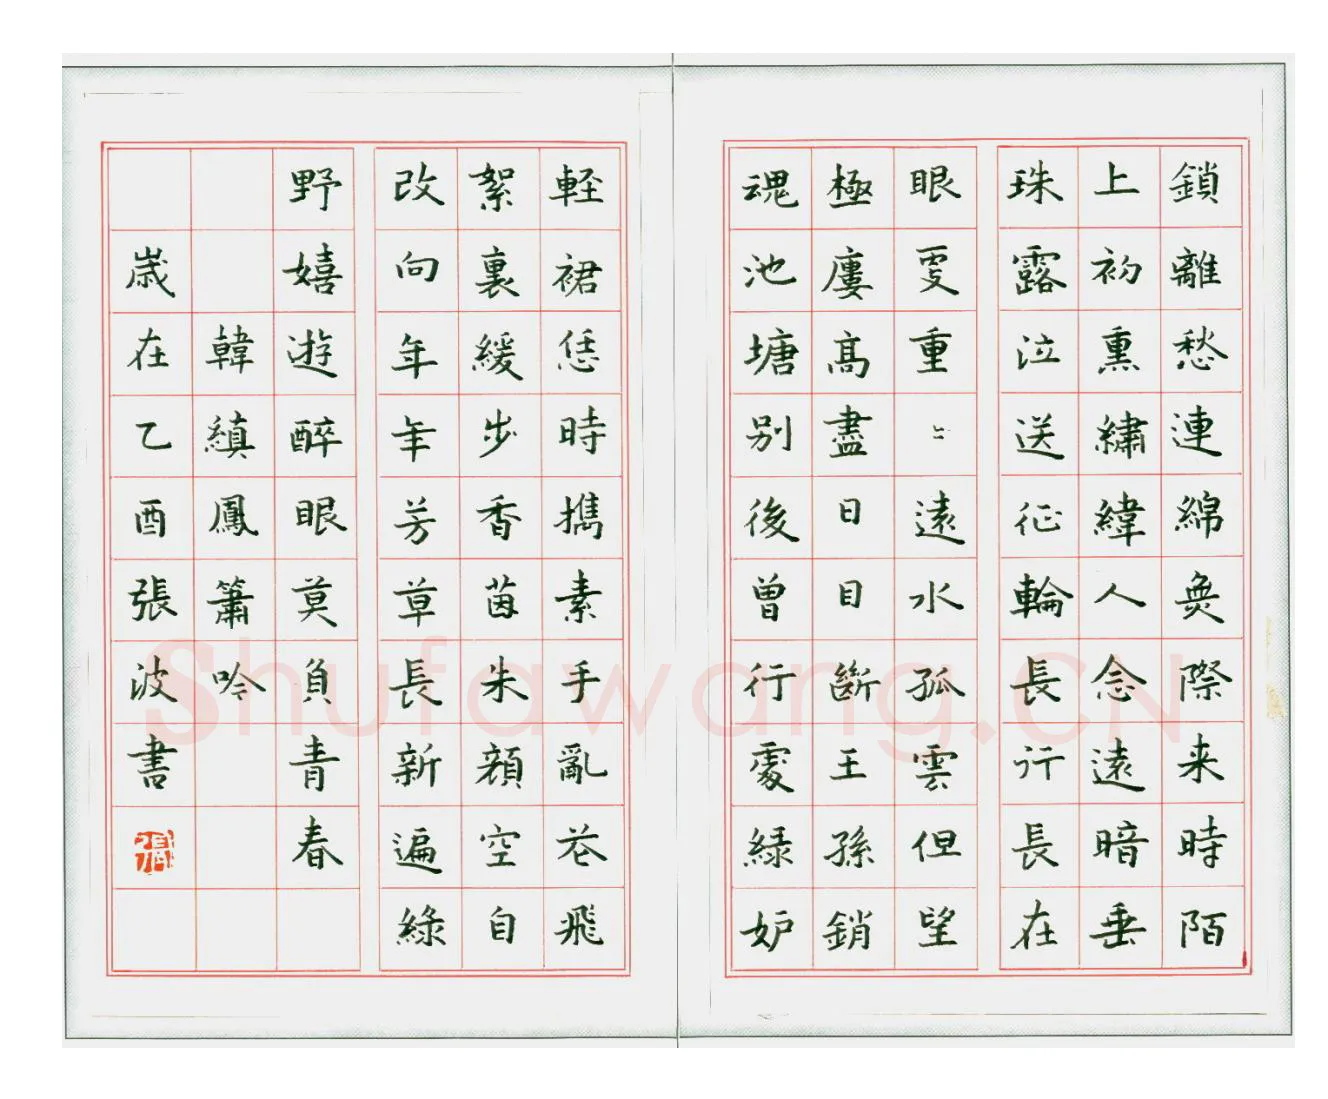 鎖離愁連綿無際来時陌
上初熏繡緯人念遠暗垂
珠露泣送征輪長行長在
眼更重々遠水孤雲但望
極廔高盡日目斷王孫銷
魂池塘別後曽行處緑妒
軽裙恁時攜素手亂花飛
絮裏緩步香茵朱顔空自
改向年年芳草長新遍綠
野嬉遊醉眼莫負青春
韓縝鳳簫吟
歲在乙酉張波書
張
Shufawang.CN